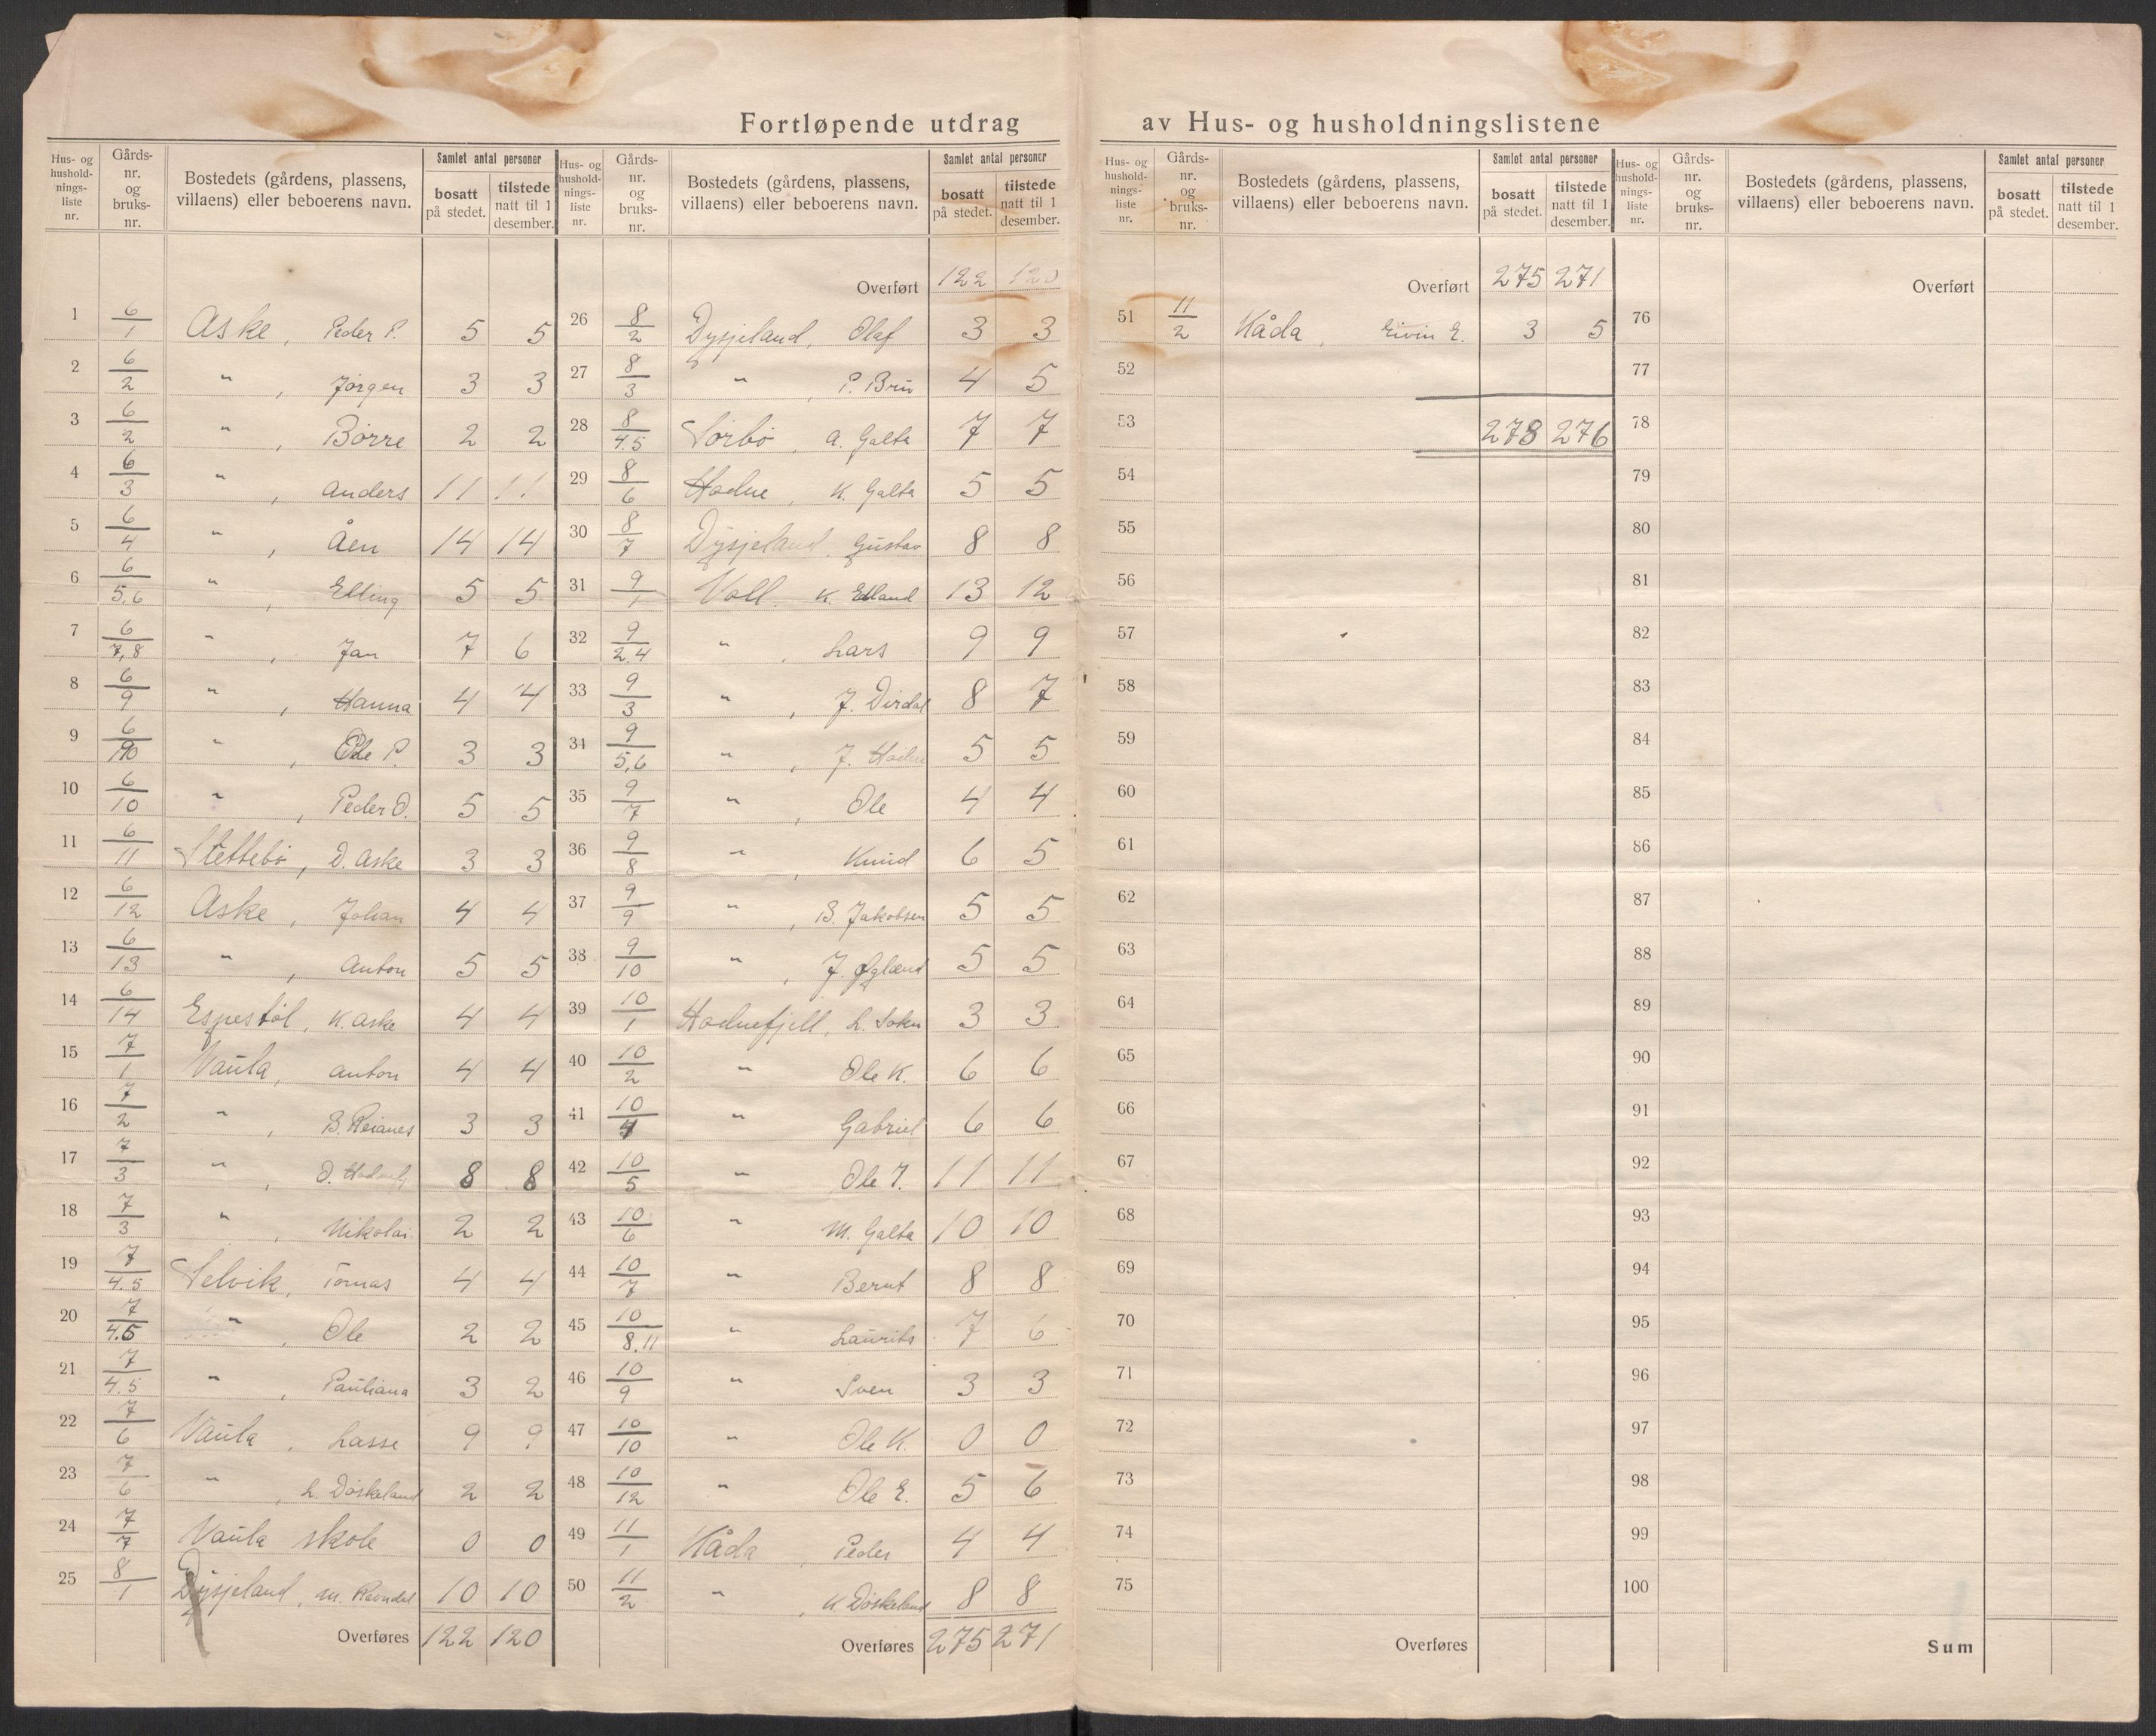 Fortløpende utdrag av Hus- og husholdningslistene
Hus- og hushold-nings-liste nr. | Gårds-nr. og bruks-nr. | Bostedets (gårdens, plassens, villaens) eller beboerens navn. | Samlet antal personer | bosatt på stedet. | tilstede natt til 1 desember.
1 6/1 Aske, Peder P. 5 5
2 6/2 " , Jørgen 3 3
3 6/2 " , Børre 2 2
4 6/3 " , Anders 11 11
5 6/4 " , Åen 14 14
6 6/5,6 " , Elling 5 5
7 6/7,8 " , Jan 7 6
8 6/9 " , Hanna 4 4
9 6/10 " , Ole P. 3 3
10 6/10 " , Peder O. 5 5
11 6/11 Slettebø, D. Aske 3 3
12 6/12 Aske, Johan 4 4
13 6/13 " , Anton 5 5
14 6/14 Espestøl, K. Aske 4 4
15 7/1 Vaula, Anton 4 4
16 7/2 " , B. Reianes 3 3
17 7/3 " , O. 8 8
18 7/3 " , Nikolai 2 2
19 7/4.5 Selvik, Tomas 4 4
20 7/4.5 " , Ole 2 2
21 7/4.5 " , Pauliana 3 2
22 7/6 Vaula, Lasse 9 9
23 7/6 " , L. Døskeland 2 2
24 7/7 Vaula skole 0 0
25 8/1 Dysjeland, M. Ravndal 10 10
Overføres 122 120
Hus- og hushold-nings-liste nr. | Gårds-nr. og bruks-nr. | Bostedets (gårdens, plassens, villaens) eller beboerens navn. | Samlet antal personer | bosatt på stedet. | tilstede natt til 1 desember.
Overført 122 120
26 8/2 Dysjeland, Olaf 3 3
27 8/3 " , P. Bru 4 5
28 8/4.5 Sørbø, A. Galta 7 7
29 8/6 Hodne, K. Galta 5 5
30 8/7 Dysjeland, Gustav 8 8
31 9/1 Voll. K. Edland 13 12
32 9/2.4 " , Lars 9 9
33 9/3 " , J. Dirdal 8 7
34 9/5,6 " , J. Hodne 5 5
35 9/7 " , Ole 4 4
36 9/8 " , Knud 6 5
37 9/9 " , B. Jakobsen 5 5
38 9/10 " , J. Øglænd 5 5
39 10/1 Hodnefjell, L. Sokn 3 3
40 10/2 " Ole K. 6 6
41 10/4 " Gabriel 6 6
42 10/5 " Ole J. 11 11
43 10/6 " M. Galta 10 10
44 10/7 " Bernt 8 8
45 10/8.11 " Laurits 7 6
46 10/9 " Sven 3 3
47 10/10 " Ole K. 0 0
48 10/12 " Ole E. 5 6
49 11/1 Håda, Peder 4 4
50 11/2 " , K. Døskeland 8 8
Overføres 275 271
Hus- og hushold-nings-liste nr. | Gårds-nr. og bruks-nr. | Bostedets (gårdens, plassens, villaens) eller beboerens navn. | Samlet antal personer | bosatt på stedet. | tilstede natt til 1 desember.
Overført 275 271
51 11/2 Håda, Eivin E. 3 5
52
53 278 276
54
55
56
57
58
59
60
61
62
63
64
65
66
67
68
69
70
71
72
73
74
75
Overføres
Hus- og hushold-nings-liste nr. | Gårds-nr. og bruks-nr. | Bostedets (gårdens, plassens, villaens) eller beboerens navn. | Samlet antal personer | bosatt på stedet. | tilstede natt til 1 desember.
Overført
76
77
78
79
80
81
82
83
84
85
86
87
88
89
90
91
92
93
94
95
96
97
98
99
100
Sum